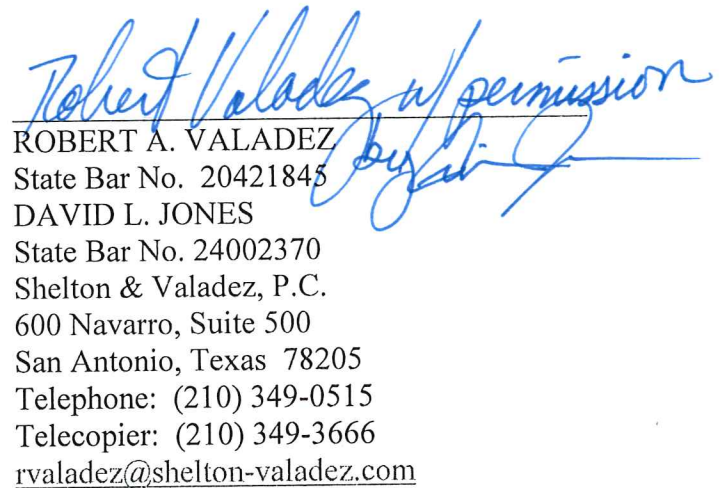 Robert Valadez w/ permission
by
ROBERT A. VALADEZ
State Bar No. 20421845
DAVID L. JONES
State Bar No. 24002370
Shelton & Valadez, P.C.
600 Navarro, Suite 500
San Antonio, Texas 78205
Telephone: (210) 349-0515
Telecopier: (210) 349-3666
rvaladez@shelton-valadez.com